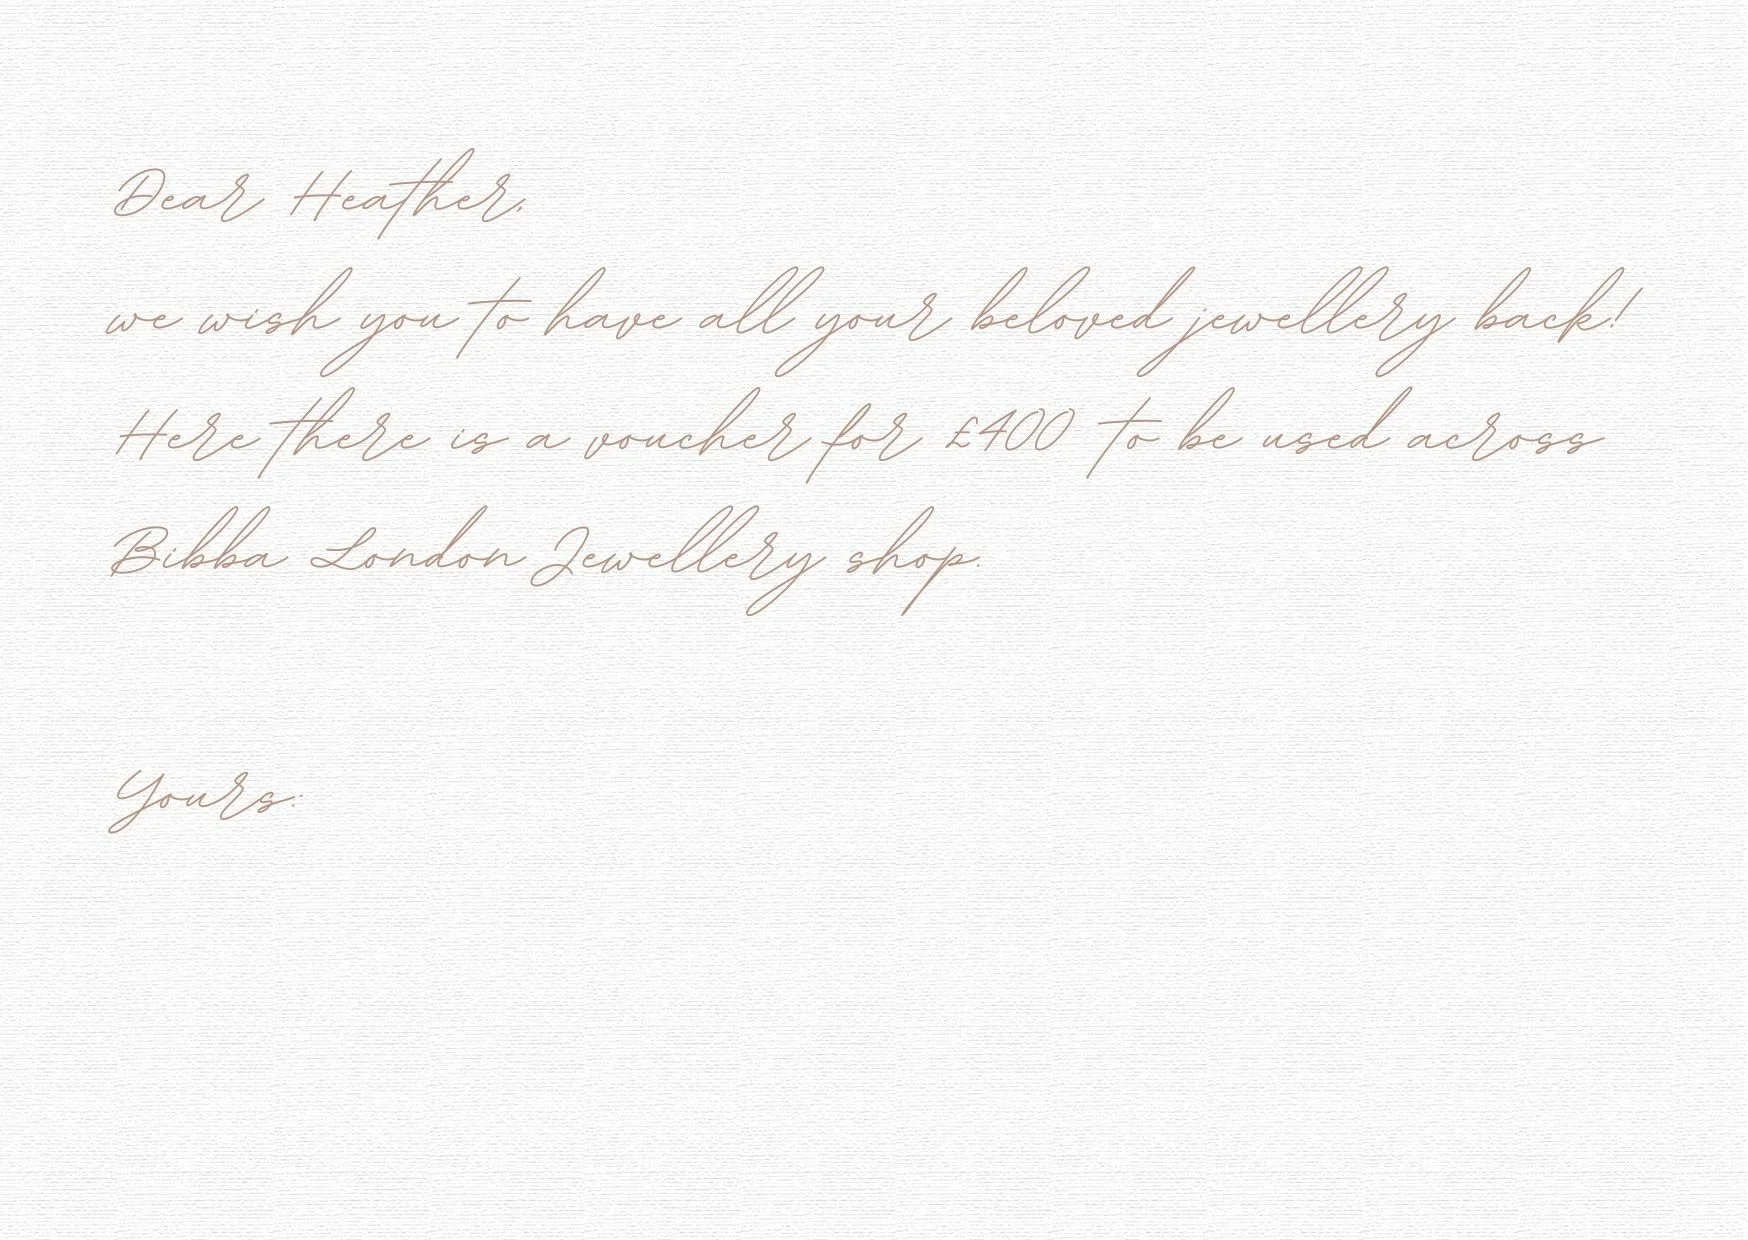 Dear Heather,
we wish you to have all your beloved jewellery back!
Here there is a voucher for £400 to be used across
Bibba London Jewellery shop.
Yours: